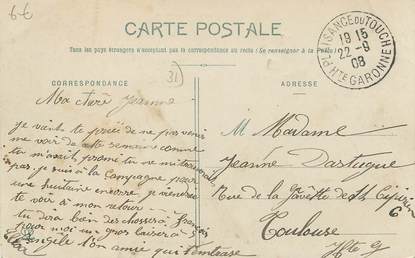 6€
CARTE POSTALE
Tous les pays étrangers n'acceptent pas la correspondance au recto (Se renseigner à la Poste)
CORRESPONDANCE
ADRESSE
31
PLAISANCE DU TOUCH
19 15
22 - 9
08
HTE GARONNE
Ma chère Jeanne
je viens te de ne pas venir
me voir cette semaine comme
tu m'avais promi tu ne me
pas je suis à la Campagne pour
une huitaine encore je viendrai
te voir à mon retour
tu dira bien des choses à François
pour moi
Angèle ton amie qui t'embrasse
M Madame
Jeanne Dastugue
Rue de la
6
Toulouse
Hte G